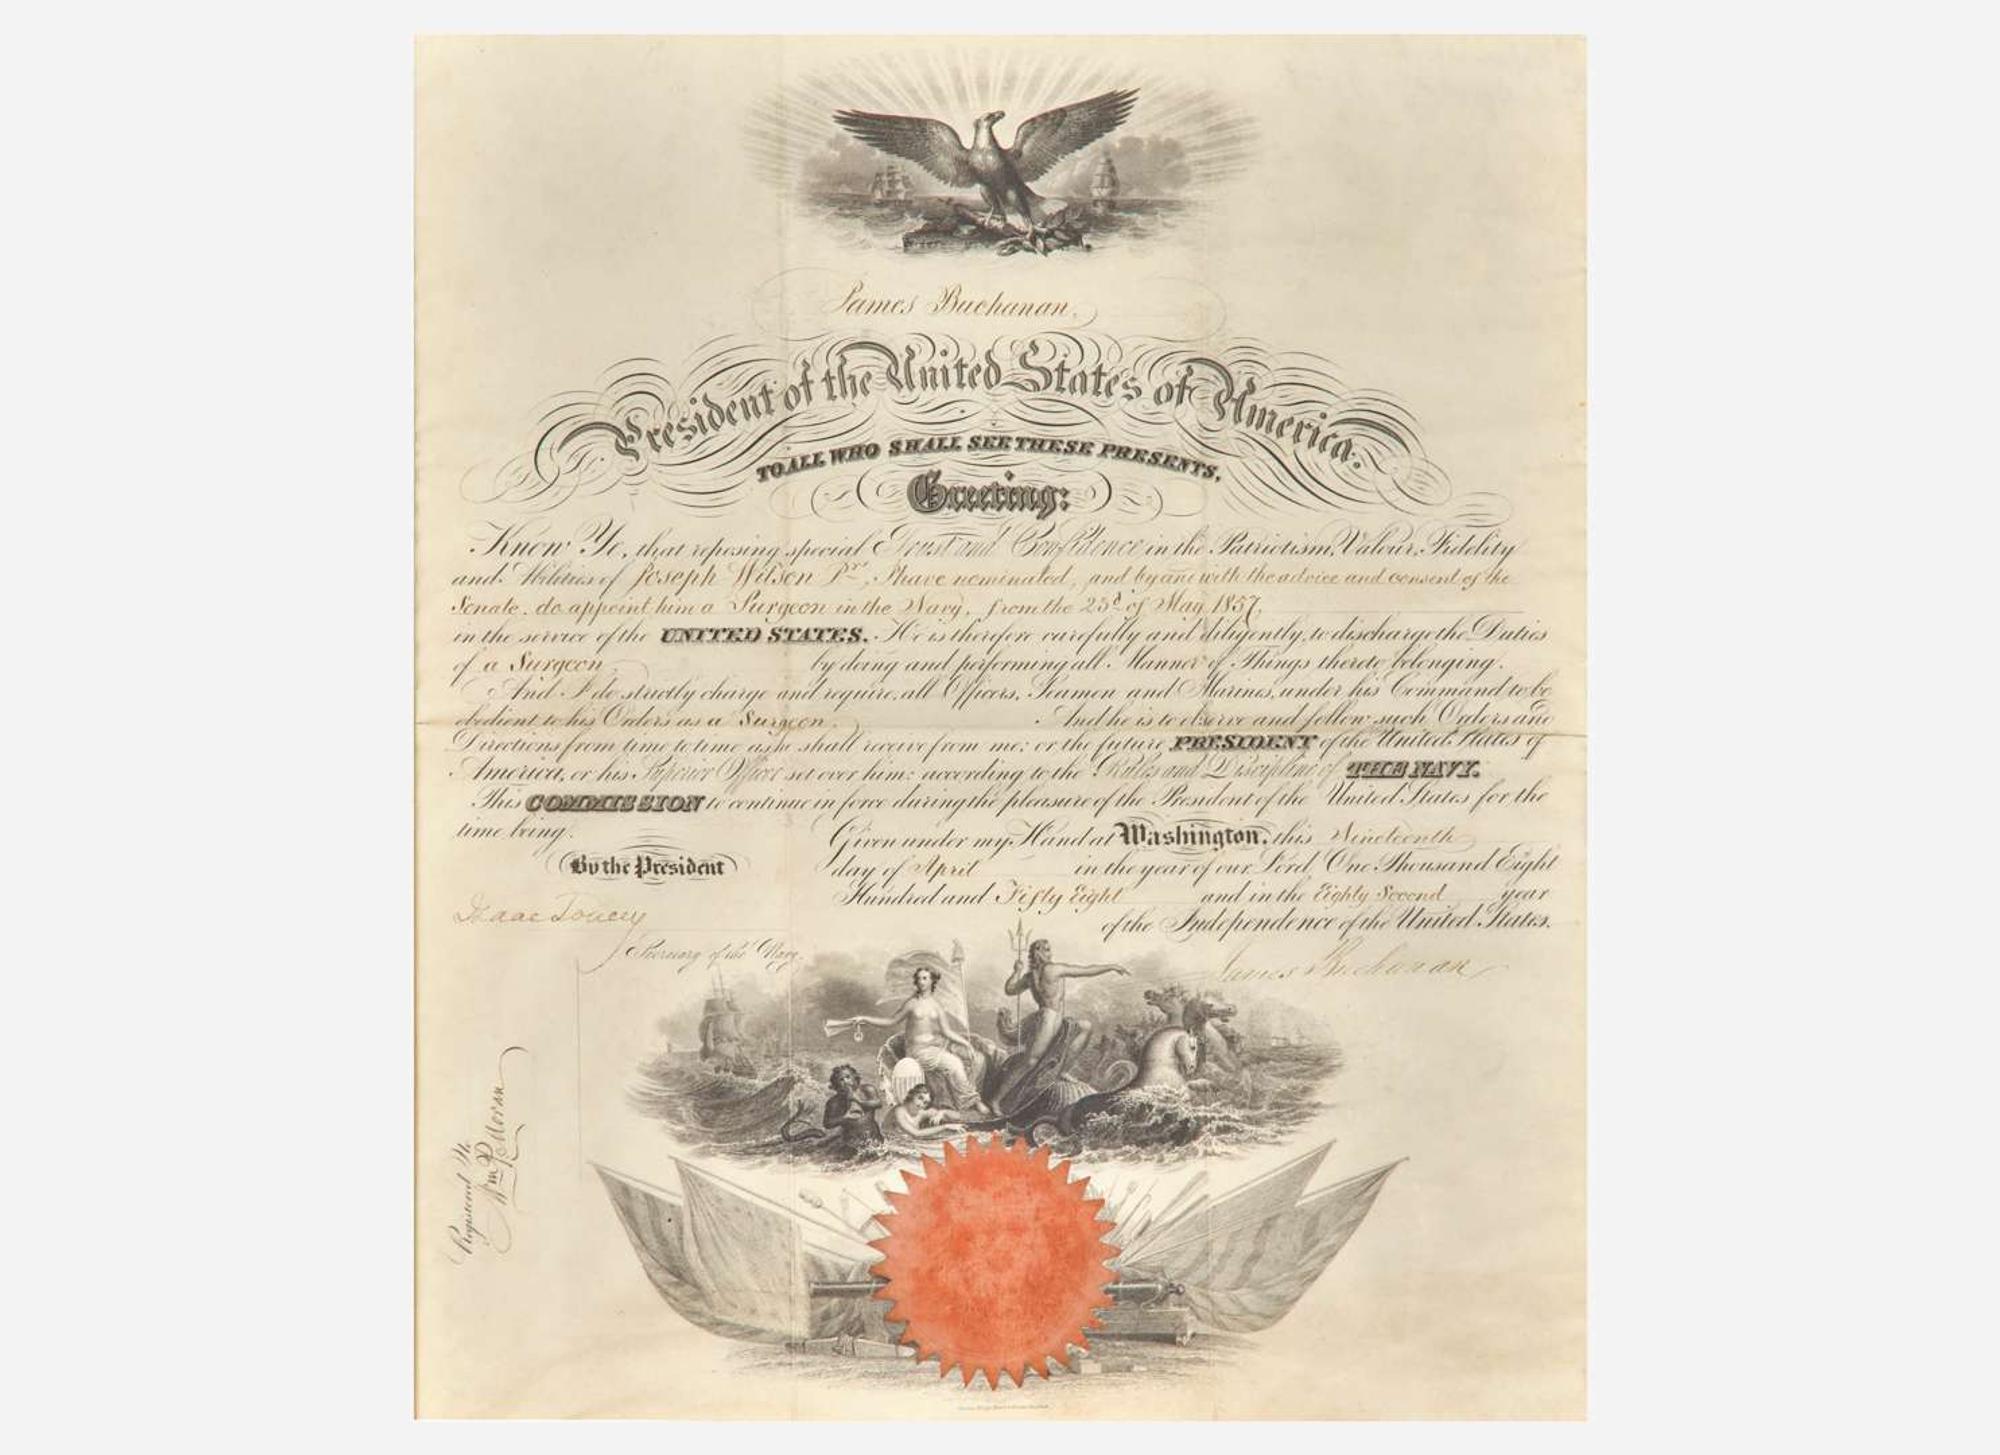 James Buchanan,
President of the United States of America.
TO ALL WHO SHALL SEE THESE PRESENTS,
Greeting:
Know Ye, that reposing special Trust and Confidence in the Patriotism, Valour, Fidelity
and Abilities of Joseph Wilson Jr., I have nominated, and by and with the advice and consent of the
Senate, do appoint him a Surgeon in the Navy, from the 23d of May, 1857,
in the service of the UNITED STATES. He is therefore carefully and diligently, to discharge the Duties
of a Surgeon, by doing and performing all Manner of Things thereto belonging.
And I do strictly charge and require, all Officers, Seamen and Marines, under his Command to be
obedient to his Orders as a Surgeon. And he is to observe and follow such Orders and
Directions from time to time as he shall receive from me; or the future PRESIDENT of the United States of
America, or his Superior Officer set over him; according to the Rules and Discipline of THE NAVY.
This COMMISSION to continue in force during the pleasure of the President of the United States for the
time being.
Given under my Hand at Washington, this Nineteenth
By the President
day of April in the year of our Lord, One Thousand Eight
Hundred and Fifty Eight and in the Eighty Second year
Isaac Toucey
of the Independence of the United States.
Secretary of the Navy.
James Buchanan
Registered